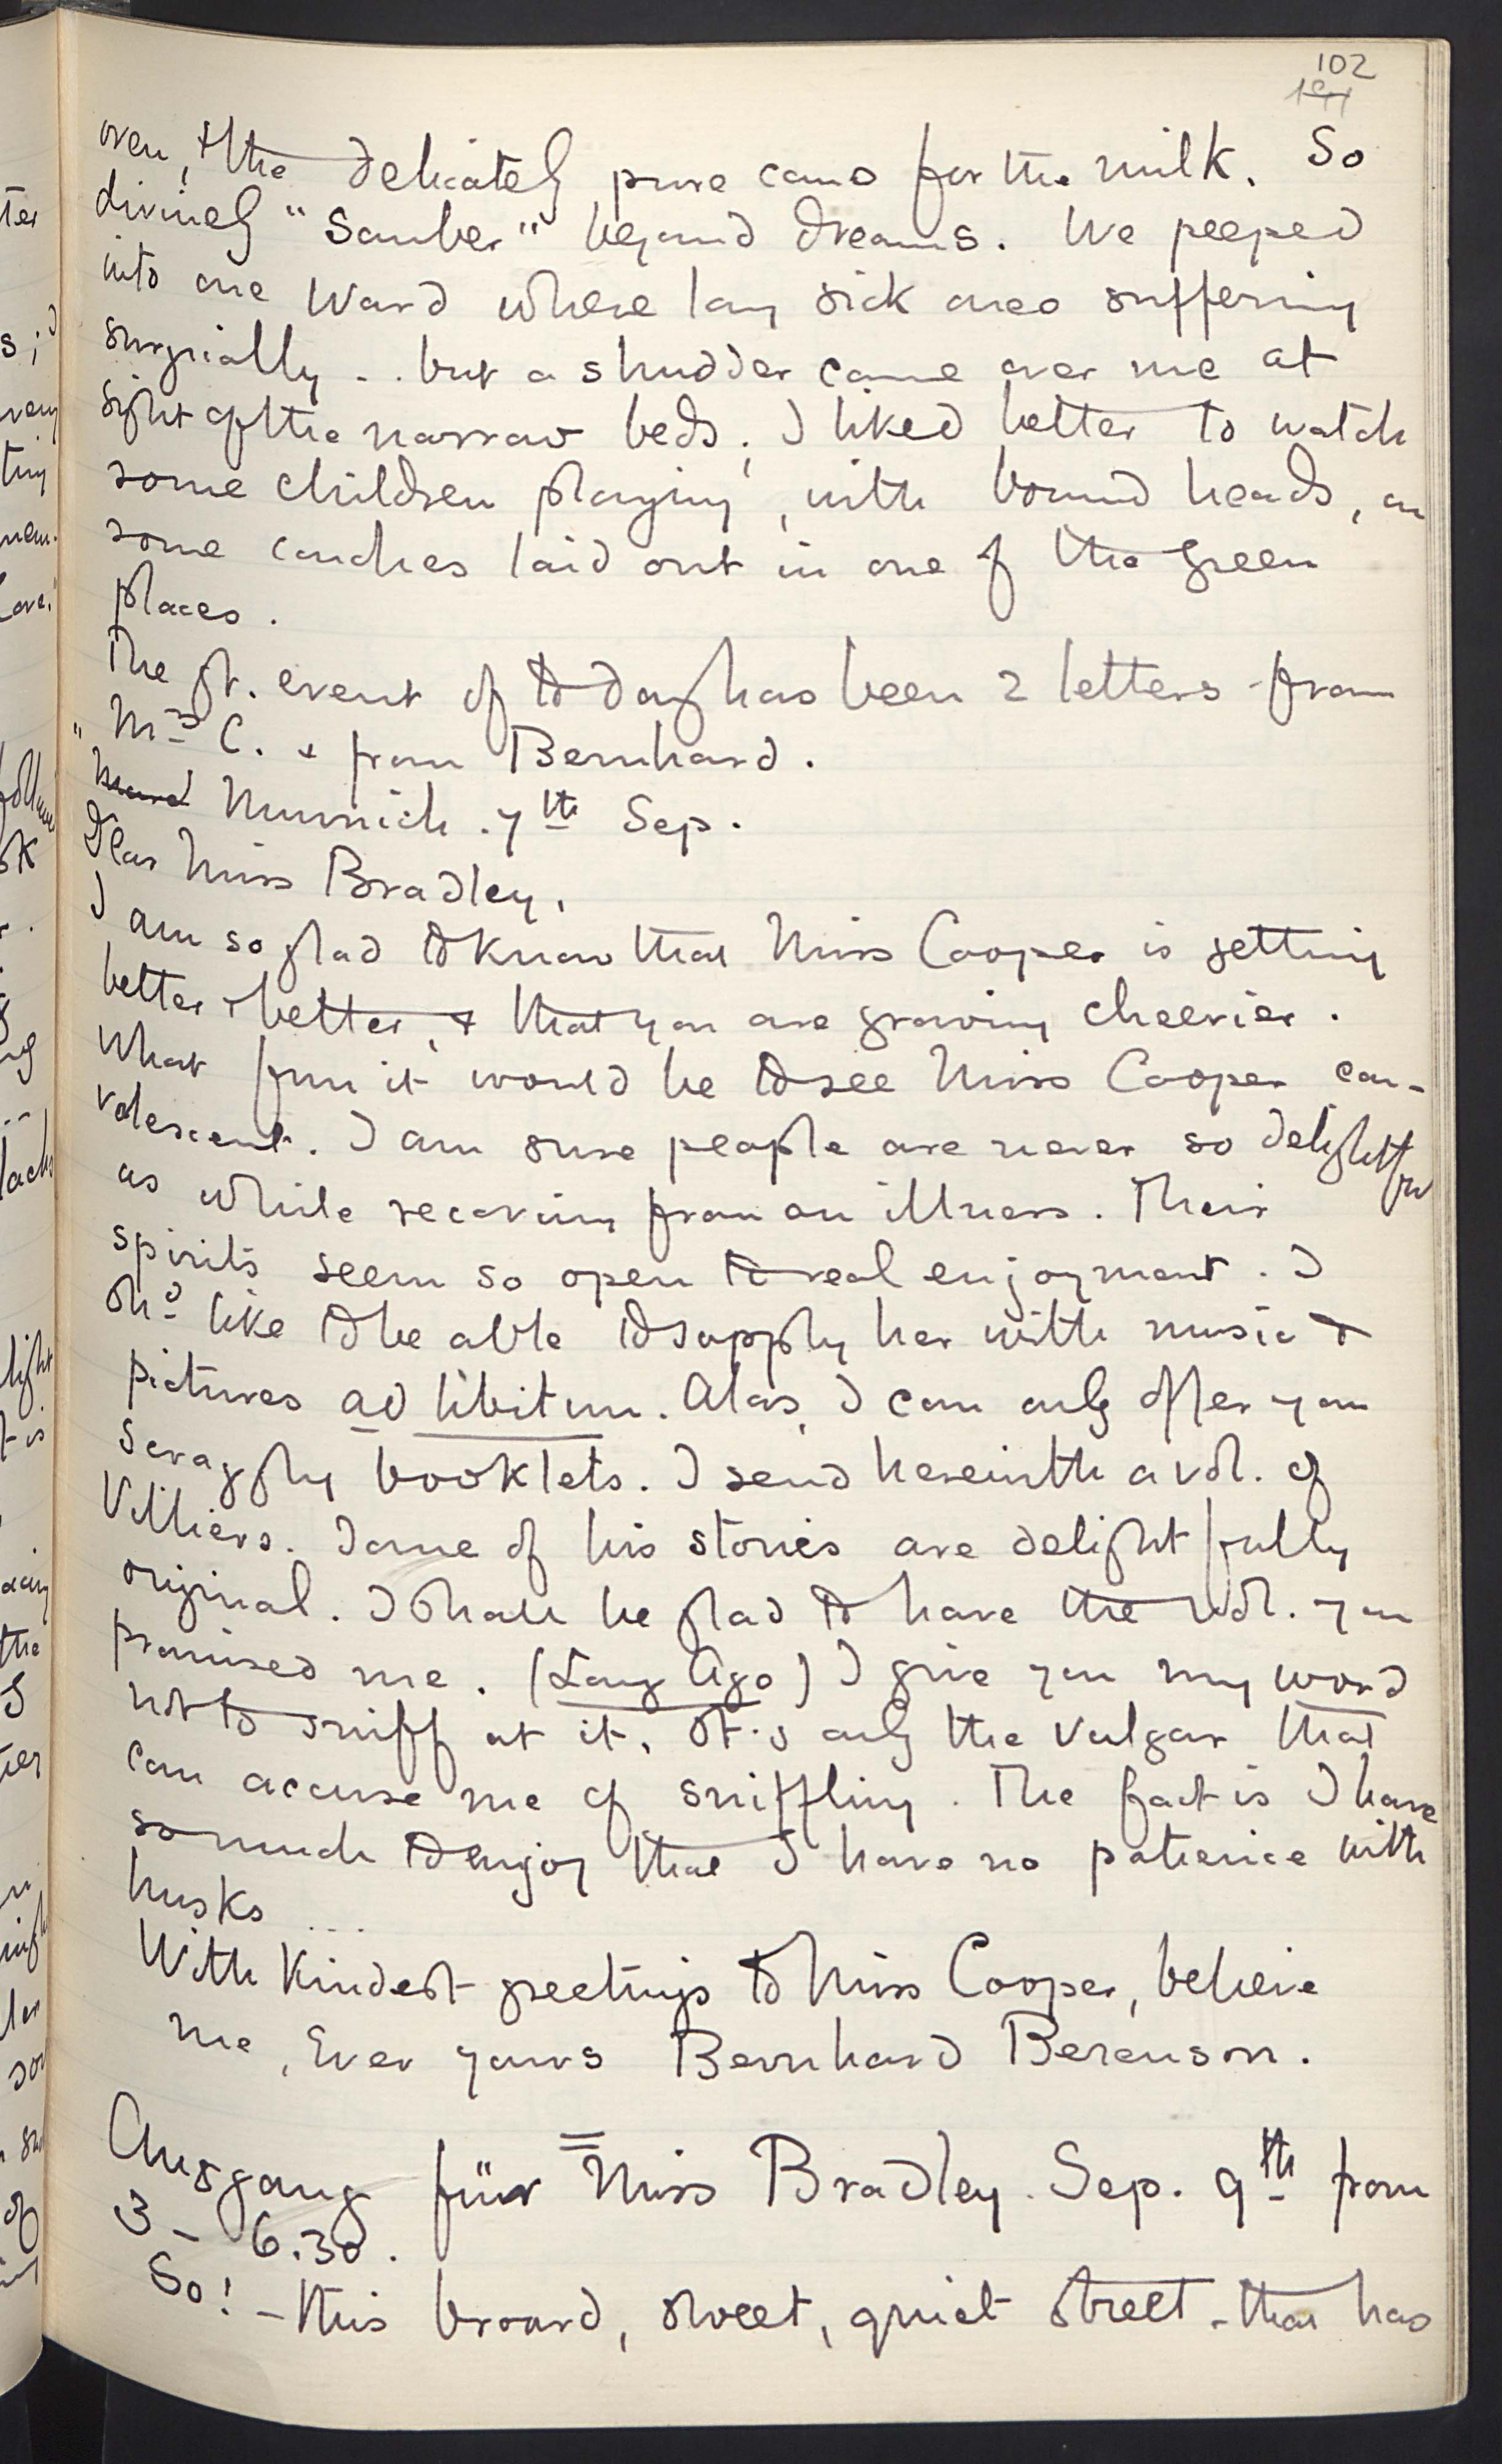 102
oven, & the delicately pure cans for the milk. So
divinely "Sauber" beyond dreams. We peeped
into one Ward where lay sick ones suffering
surgically .. but a shudder came over me at
sight of the narrow beds; I liked better to watch
some children playing, with bound heads, on
some couches laid out in one of the green
places.
The gt. event of to day has been 2 letters from
Mrs C. & from Bernhard.
" Munnich. 7th Sep.
Dear Miss Bradley,
I am so glad to know that Miss Cooper is getting
better & better, & that you are growing cheerier.
What fun it would be to see Miss Cooper con-
valescent. I am sure people are never so delightful
as while recovering from an illness. Their
spirits seem so open to real enjoyment. I
shd like to be able to supply her with music &
pictures ad libitum. Alas, I can only offer you
scraggly booklets. I send herewith a vol. of
Villiers. Some of his stories are delightfully
original. I shall be glad to have the vol. you
promised me. (Long Ago) I give you my word
not to sniff at it. It is only the vulgar that
can accuse me of sniffling. The fact is I have
so much to enjoy that I have no patience with
husks ...
With kindest greetings to Miss Cooper, believe
me, Ever yours Bernhard Berenson.
Ausgang für Miss Bradley. Sep. 9th from
3 - 6.30.
So! - this broard, sweet, quiet street - that has